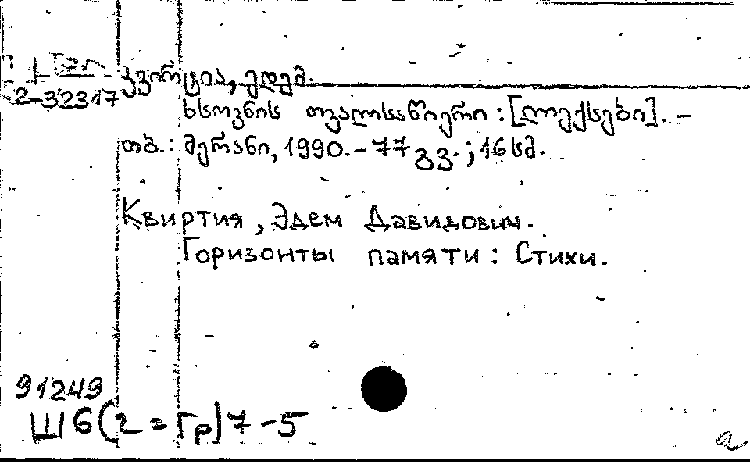 Гр
2-32317
კვირტია, ედემ.
ხსოვნის თვალსაწიერი : [ლექსები]. –
თბ. : მერანი, 1990. – 77 გვ. ; 16 სმ.
Квиртия, Эдем Давидович.
Горизонты памяти : Стихи.
91249
Ш6(2=Гр)7-5
a